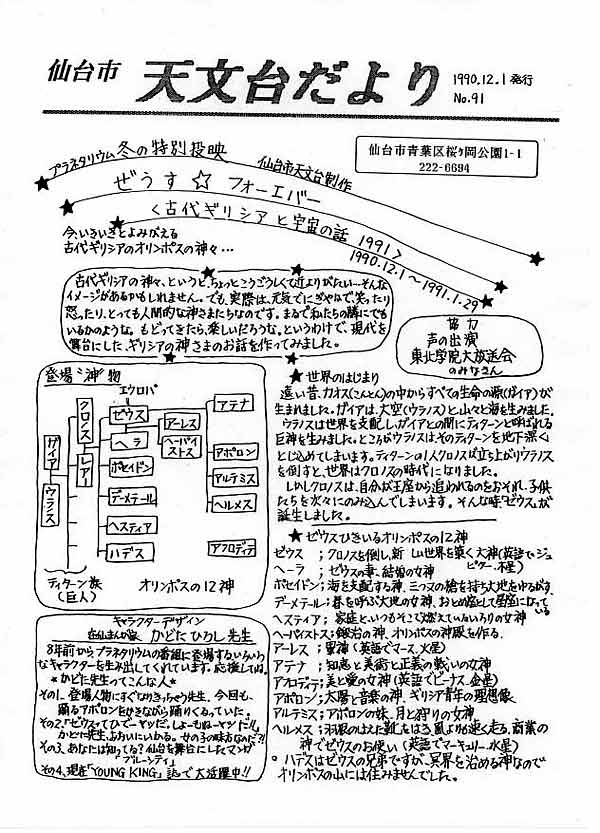 仙台市 天文台だより 1990.12.1発行
No.91
仙台市青葉区桜ヶ岡公園1-1
222-6694
プラネタリウム 冬の特別投映 仙台市天文台制作
ぜうす☆フォーエバー
<古代ギリシアと宇宙の話 1991>
1990.12.1～1991.1.29
今、いきいきとよみがえる
古代ギリシアのオリンポスの神々…
古代ギリシアの神々、というと、ちょっとこうごうしくて近よりがたい…そんな
イメージがあるかもしれません。でも、実際は、元気でにぎやかで笑ったり
怒ったり、とっても人間的な神さまたちなのです。まるで私たちの隣にでも
いるかのような。もどってきたら、楽しいだろうな、というわけで、現代を
舞台にした、ギリシアの神さまのお話を作ってみました。
協力
声の出演
東北学院大放送会
のみなさん
登場“神”物
エウロパ
ガイア
ウラノス
クロノス
レアー
ゼウス
ヘラ
ポセイドン
デーメテール
ヘスティア
ハデス
アーレス
ヘーパイストス
アテナ
アポロン
アルテミス
ヘルメス
アフロディテ
ティターン族
(巨人)
オリンポスの12神
★世界のはじまり
遠い昔、カオス(こんとん)の中からすべての生命の源(ガイア)が
生まれました。ガイアは、大空(ウラノス)と山々と海を生みました。
ウラノスは世界を支配し、ガイアとの間にティターンと呼ばれる
巨神を生みました。ところがウラノスは、そのティターンを地下深く
とじ込めてしまいます。ティターンの1人クロノスは立ち上がりウラノス
を倒すと、世界はクロノスの時代になりました。
しかしクロノスは、自分が王座から追われるのをおそれ、子供
たちを次々にのみ込んでしまいます。そんな時、「ゼウス」が
誕生しました。
★ゼウスひきいるオリンポスの12神
ゼウス ；クロノスを倒し、新しい世界を築く大神(英語でジュピター、木星)
ヘーラ ；ゼウスの妻、結婚の女神
ポセイドン；海を支配する神、三つ又の槍を持ち大地をゆるがす
デーメテール；春を呼ぶ大地の女神、おとめ座として星座になっている
ヘスティア；家庭というものそこで燃えているいろりの女神
ヘーパイストス；鍛冶の神、オリンポスの神殿を作る。
アーレス ；軍神(英語でマース、火星)
アテナ ；知恵と美術と正義の戦いの女神
アフロディテ；美と愛の女神(英語でビーナス、金星)
アポロン；太陽と音楽の神、ギリシア青年の理想像
アルテミス；アポロンの妹、月と狩りの女神
ヘルメス；羽根のはえた靴をはき、風よりも速く走る、商業の
神でゼウスのお使い(英語でマーキュリー、水星)
○ハデスはゼウスの兄弟ですが、冥界を治める神なので
オリンポスの山には住みませんでした。
キャラクターデザイン
在仙まんが家 かどたひろし先生
8年前から、プラネタリウムの番組に登場するいろいろ
なキャラクターを生み出してくれています。応援してね。
★かどた先生ってこんな人★
その1、登場人物にすぐなりきっちゃう先生、今回も、
踊るアポロンをかきながら踊りくるっていた。
その2、「ゼウスってひでーヤツだ、しょーもねーヤツだ!!」
かどた先生、おおいにいかる。女の子の味方なのだ?!
その3、あなたは知ってる? 仙台を舞台にしたマンガ
「プルーンディ」
その4、現在「YOUNG KING」誌で大活躍中!!